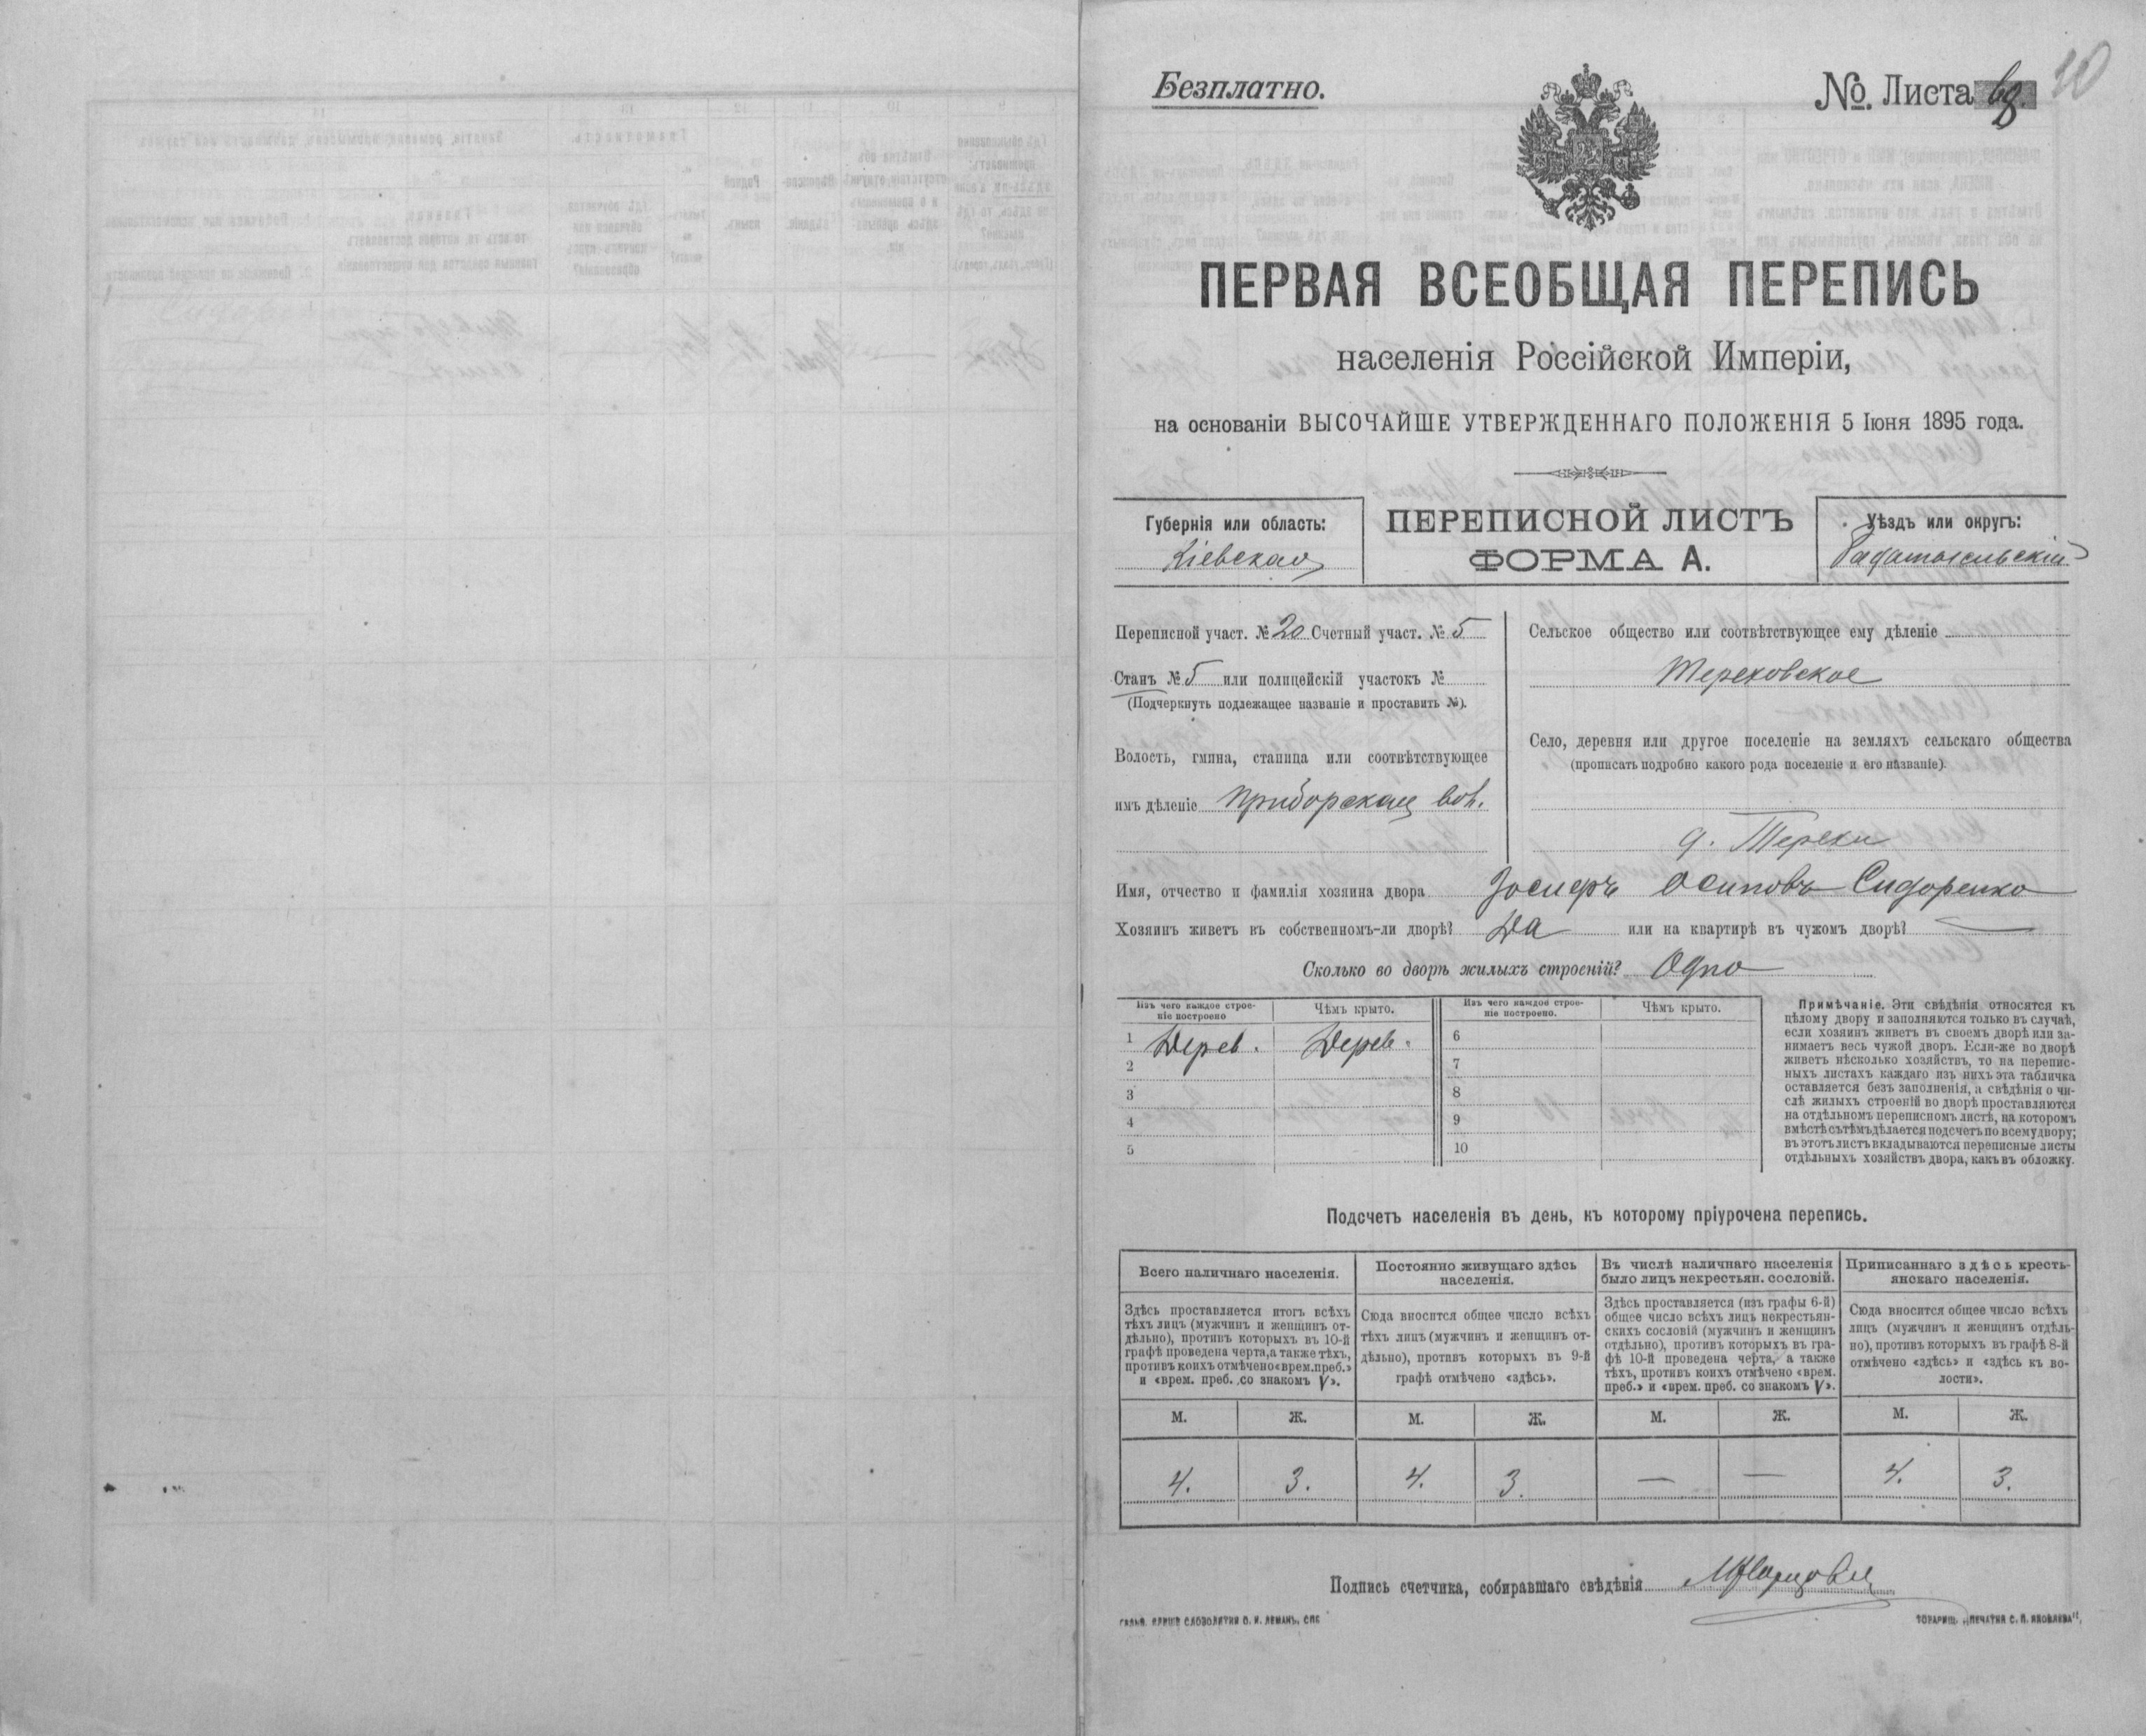 Безплатно.
№ Листа 68.
10
ПЕРВАЯ ВСЕОБЩАЯ ПЕРЕПИСЬ
населенія Россійской Имперіи,
на основаніи ВЫСОЧАЙШЕ УТВЕРЖДЕННАГО ПОЛОЖЕНІЯ 5 Іюня 1895 года.
Губернія или область:
Кіевская
ПЕРЕПИСНОЙ ЛИСТЪ
ФОРМА А.
Уѣздъ или округъ:
Радомысльскій
Переписной участ. № 20 Счетный участ. № 5
Станъ № 5 или полицейскій участокъ №
(Подчеркнуть подлежащее названіе и проставить №).
Волость, гмина, станица или соотвѣтствующее
имъ дѣленіе Приборская вол.
Сельское общество или соотвѣтствующее ему дѣленіе
Тереховское
Село, деревня или другое поселеніе на земляхъ сельскаго общества
(прописать подробно какого рода поселеніе и его названіе).
д. Терехи
Имя, отчество и фамилія хозяина двора Іосифъ Осиповъ Сидоренко
Хозяинъ живетъ въ собственномъ-ли дворѣ? Да или на квартирѣ въ чужомъ дворѣ? —
Сколько во дворѣ жилыхъ строеній? Одно
Изъ чего каждое строе-
ніе построено
Чѣмъ крыто.
Изъ чего каждое строе-
ніе построено.
Чѣмъ крыто.
1 Дерев. Дерев. 6
2 7
3 8
4 9
5 10
Примѣчаніе. Эти свѣдѣнія относятся къ
цѣлому двору и заполняются только въ случаѣ,
если хозяинъ живетъ въ своемъ дворѣ или за-
нимаетъ весь чужой дворъ. Если-же во дворѣ
живетъ нѣсколько хозяйствъ, то на перепис-
ныхъ листахъ каждаго изъ нихъ эта табличка
оставляется безъ заполненія, а свѣдѣнія о чи-
слѣ жилыхъ строеній во дворѣ проставляются
на отдѣльномъ переписномъ листѣ, на которомъ
вмѣстѣ съ тѣмъ дѣлается подсчетъ по всему двору;
въ этотъ листъ вкладываются переписные листы
отдѣльныхъ хозяйствъ двора, какъ въ обложку.
Подсчетъ населенія въ день, къ которому пріурочена перепись.
Всего наличнаго населенія.
Здѣсь проставляется итогъ всѣхъ
тѣхъ лицъ (мужчинъ и женщинъ от-
дѣльно), противъ которыхъ въ 10-й
графѣ проведена черта, а также тѣхъ,
противъ коихъ отмѣчено «врем. преб.»
и «врем. преб. со знакомъ V».
Постоянно живущаго здѣсь
населенія.
Сюда вносится общее число всѣхъ
тѣхъ лицъ (мужчинъ и женщинъ от-
дѣльно), противъ которыхъ въ 9-й
графѣ отмѣчено «здѣсь».
Въ числѣ наличнаго населенія
было лицъ некрестьян. сословій.
Здѣсь проставляется (изъ графы 6-й)
общее число всѣхъ лицъ некрестьян-
скихъ сословій (мужчинъ и женщинъ
отдѣльно), противъ которыхъ въ гра-
фѣ 10-й проведена черта, а также
тѣхъ, противъ коихъ отмѣчено «врем.
преб.» и «врем. преб. со знакомъ V».
Приписаннаго здѣсь кресть-
янскаго населенія.
Сюда вносится общее число всѣхъ
лицъ (мужчинъ и женщинъ отдѣль-
но), противъ которыхъ въ графѣ 8-й
отмѣчено «здѣсь» и «здѣсь къ во-
лости».
М. Ж. М. Ж. М. Ж. М. Ж.
4. 3. 4. 3. — — 4. 3.
Подпись счетчика, собиравшаго свѣдѣнія
ГАЛЬВ. КЛИШЕ СЛОВОЛИТНИ О. И. ЛЕМАНЪ, СПБ
ТОВАРИЩ. „ПЕЧАТНЯ С. П. ЯКОВЛЕВА“,